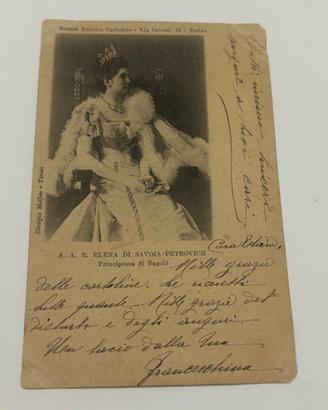 Società Editrice Cartoline - Via Cavour, 12 - Torino
Eliotipia Molfese - Torino
S. A. R. ELENA DI SAVOIA-PETROVICH
Principessa di Napoli
Cara Chiara,
Mille grazie
delle cartoline. Le ricevetti
tutte quante. Mille grazie del
disturbo e degli auguri.
Un bacio dalla tua
Franceschina
auguri a tuoi cari